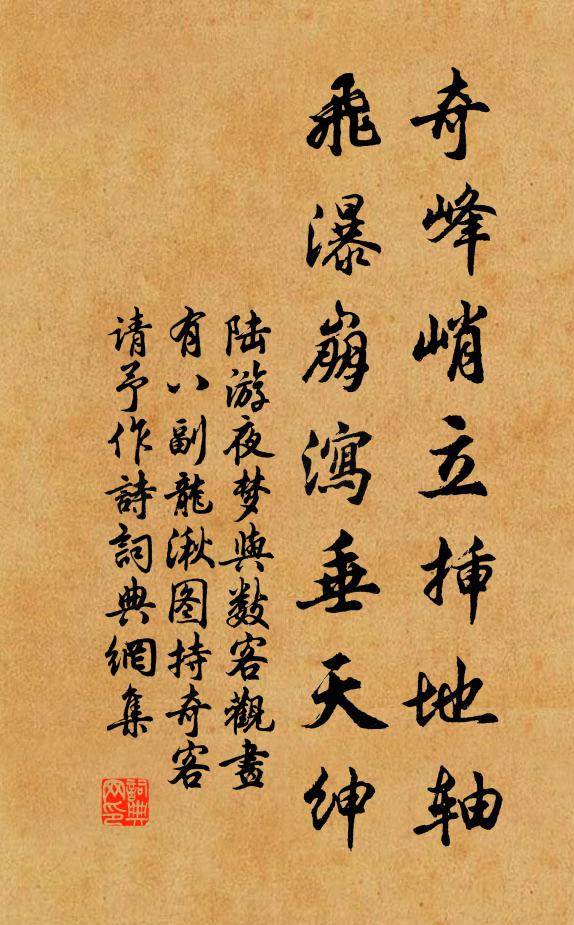 奇峰峭立插地軸
飛瀑崩瀉垂天紳
陆游夜梦與數客觀畫
有八副龍湫图持奇客
请予作詩詞典網集
詞典
网印